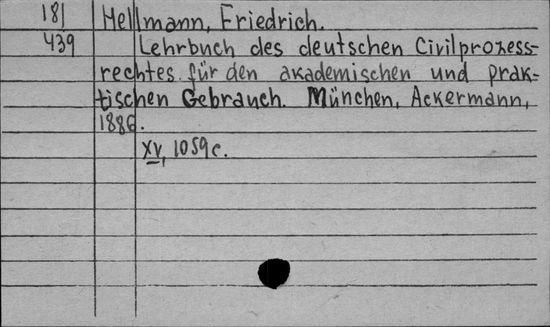 181 Hellmann, Friedrich.
439 Lehrbuch des deutschen Civilprozess-
rechtes für den akademischen und prak-
tischen Gebrauch. München, Ackermann,
1886.
XV, 1059 c.